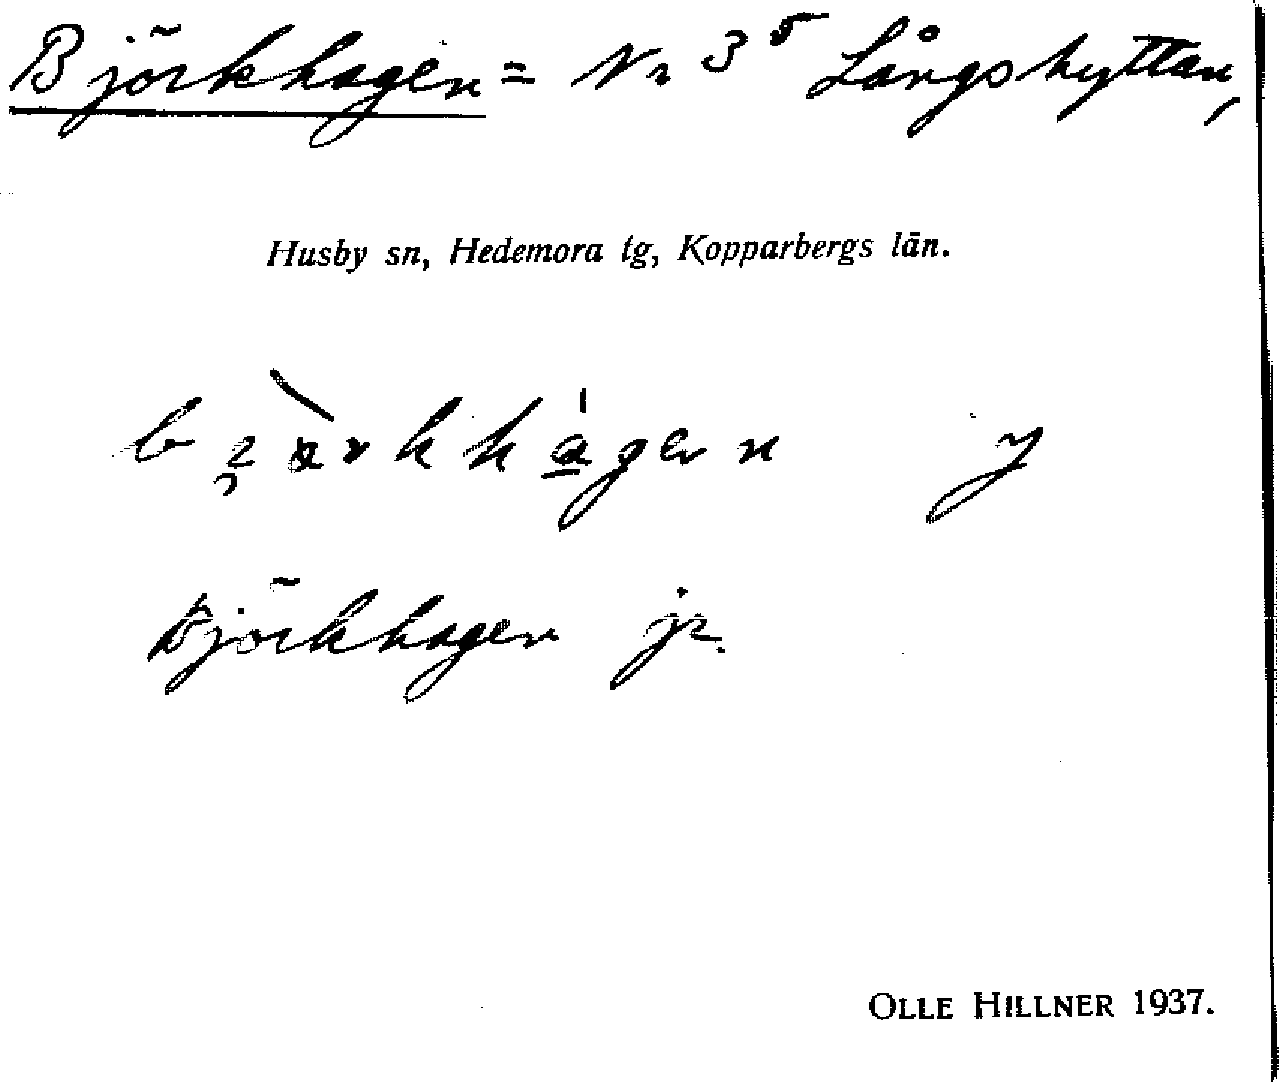 Björkhagen = Nr 3⁵ Långshyttan,
Husby sn, Hedemora tg, Kopparbergs län.
Björkhagen jr.
OLLE HILLNER 1937.